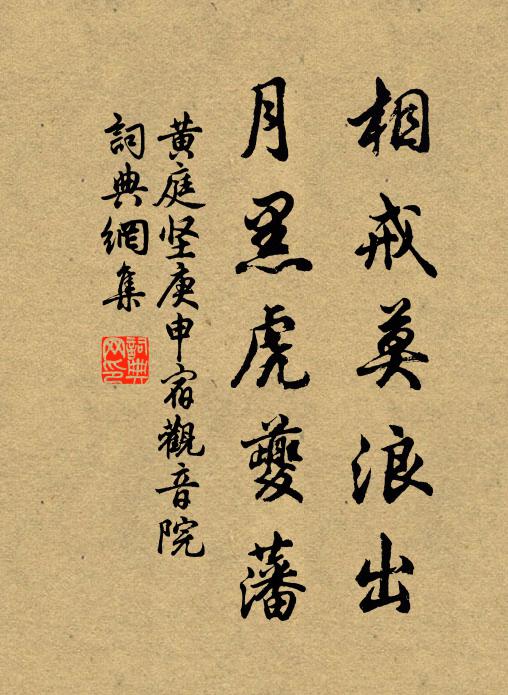 相戒莫浪出
月黑虎夔藩
黄庭坚庚申宿觀音院
詞典網集
詞典网印